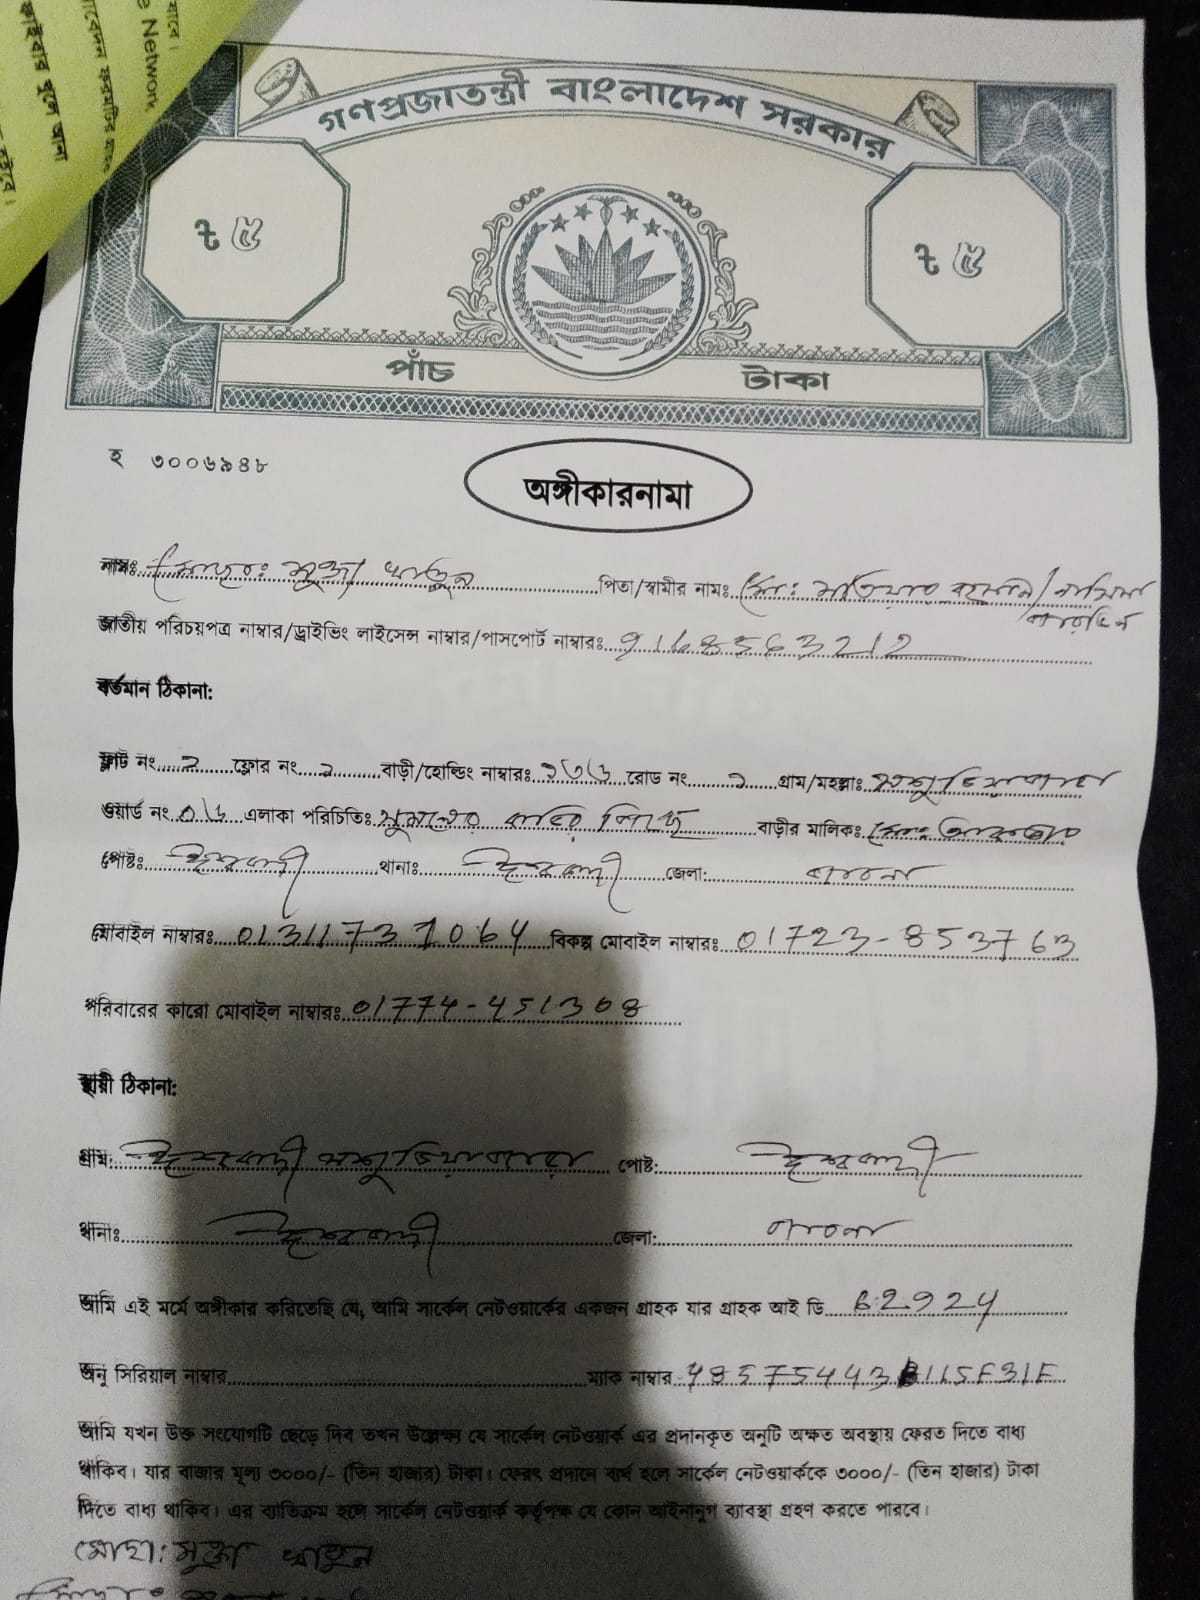 যাবে।
e Network
াবেদন ফরমটির
ফাইবার খুলে আনা
হইবে।
গণপ্রজাতন্ত্রী বাংলাদেশ সরকার
ট ৫ ট ৫
পাঁচ টাকা
হ ৩০০৬৯৪৮
অঙ্গীকারনামা
নামঃ মোছাঃ মুক্তা খাতুন পিতা/স্বামীর নামঃ মোঃ মতিয়ার রহমান/নাসিমা
জাতীয় পরিচয়পত্র নাম্বার/ড্রাইভিং লাইসেন্স নাম্বার/পাসপোর্ট নাম্বারঃ 9168563212
বর্তমান ঠিকানা:
ফ্লাট নং ২ ফ্লোর নং ২ বাড়ী/হোল্ডিং নাম্বারঃ রোড নং ২ গ্রাম/মহল্লাঃ মশুড়িয়াপাড়া
ওয়ার্ড নং ০৬ এলাকা পরিচিতিঃ বাড়ীর মালিকঃ মোঃ
পোষ্টঃ ঈশ্বরদী থানাঃ ঈশ্বরদী জেলা: পাবনা
মোবাইল নাম্বারঃ 01311737064 বিকল্প মোবাইল নাম্বারঃ 01723-853763
পরিবারের কারো মোবাইল নাম্বারঃ 01774-451308
স্থায়ী ঠিকানা:
গ্রাম: ঈশ্বরদী মশুড়িয়াপাড়া পোষ্ট: ঈশ্বরদী
থানাঃ ঈশ্বরদী জেলা: পাবনা
আমি এই মর্মে অঙ্গীকার করিতেছি যে, আমি সার্কেল নেটওয়ার্কের একজন গ্রাহক যার গ্রাহক আই ডি 62924
অনু সিরিয়াল নাম্বার ম্যাক নাম্বার 485754431165F31F
আমি যখন উক্ত সংযোগটি ছেড়ে দিব তখন উল্লেক্ষ্য যে সার্কেল নেটওয়ার্ক এর প্রদানকৃত অনুটি অক্ষত অবস্থায় ফেরত দিতে বাধ্য
থাকিব। যার বাজার মূল্য ৩০০০/- (তিন হাজার) টাকা। ফেরৎ প্রদানে ব্যর্থ হলে সার্কেল নেটওয়ার্ককে ৩০০০/- (তিন হাজার) টাকা
দিতে বাধ্য থাকিব। এর ব্যতিক্রম হলে সার্কেল নেটওয়ার্ক কর্তৃপক্ষ যে কোন আইনানুগ ব্যবস্থা গ্রহণ করতে পারবে।
মোছা: মুক্তা খাতুন